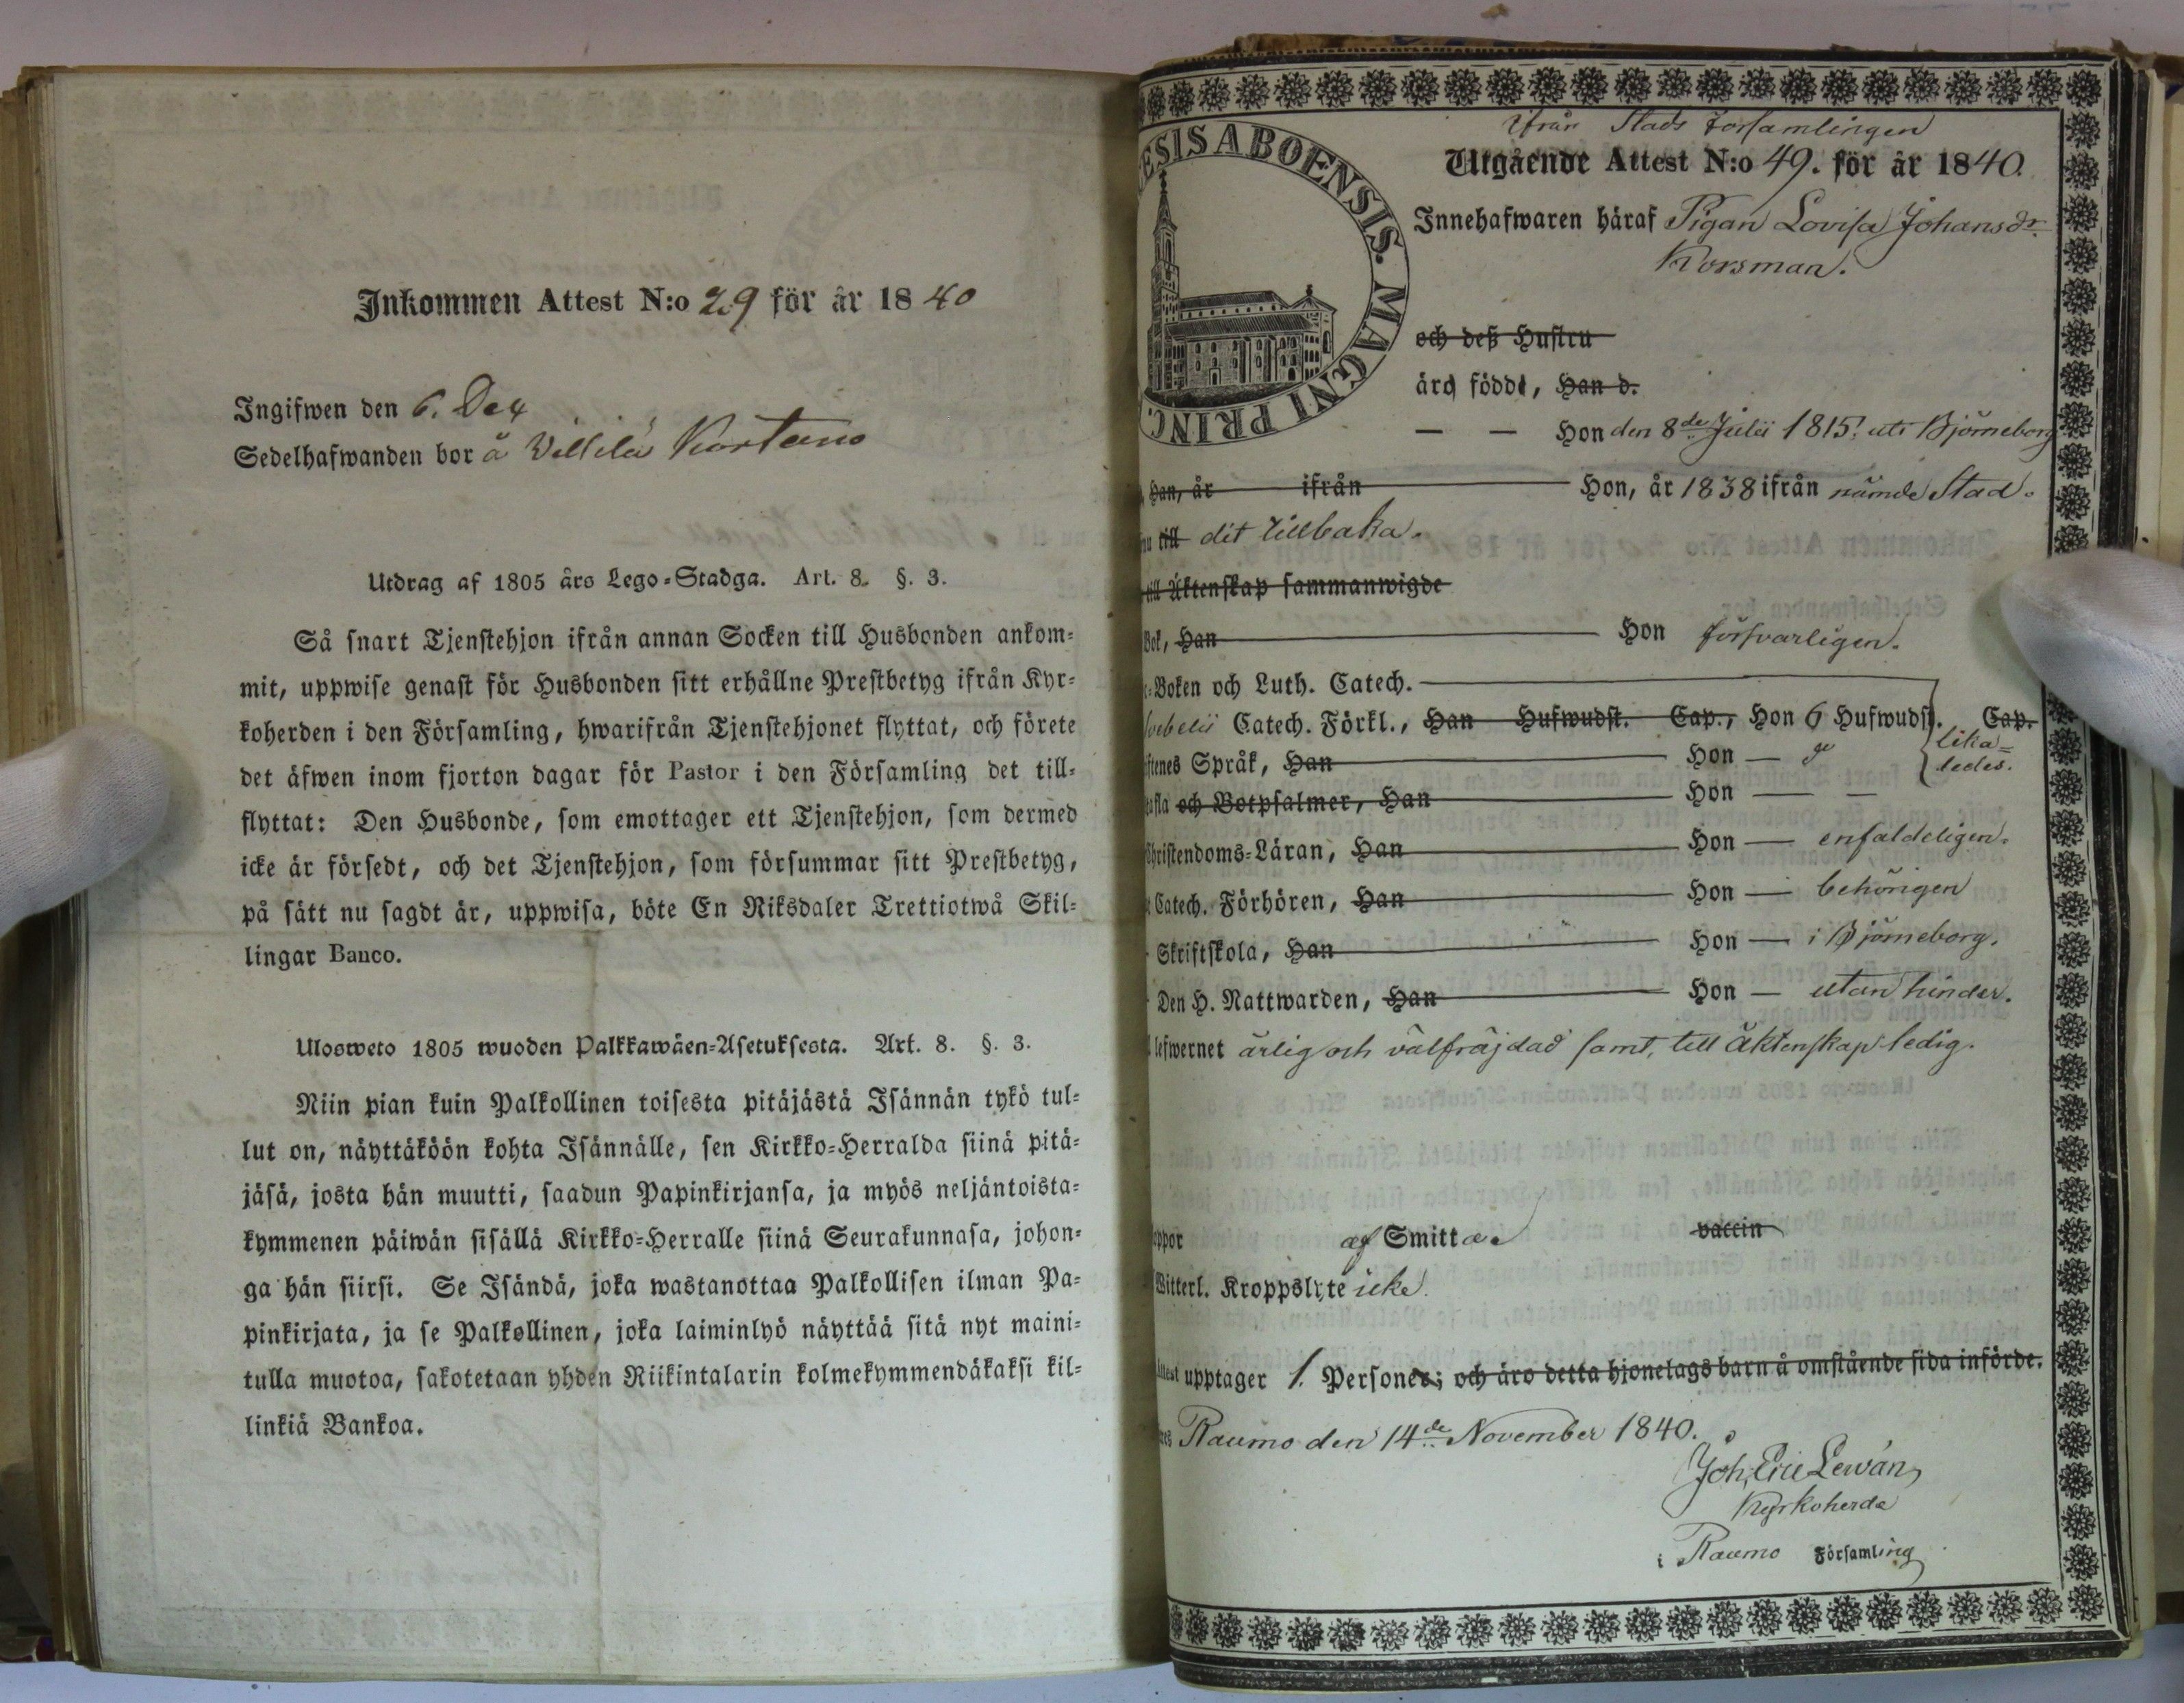 Inkommen Attest N:o 29 för år 1840
Ingifwen den 6. Dec
Sedelhafwanden bor å Villilä
Utdrag af 1805 års Lego-Stadga. Art. 8. §. 3.
Så snart Tjenstehjon ifrån annan Socken till Husbonden ankom-
mit, uppwise genast för Husbonden sitt erhållne Prestbetyg ifrån Kyr-
koherden i den Församling, hwarifrån Tjenstehjonet flyttat, och förete
det äfwen inom fjorton dagar för Pastor i den Församling det till-
flyttat: Den Husbonde, som emottager ett Tjenstehjon, som dermed
icke är försedt, och det Tjenstehjon, som försummar sitt Prestbetyg,
på sätt nu sagdt är, uppwisa, böte En Riksdaler Trettiotwå Skil-
lingar Banco.
Ulosweto 1805 wuoden Palkkawäen-Asetuksesta. Art. 8. §. 3.
Niin pian kuin Palkollinen toisesta pitäjästä Isännän tykö tul-
lut on, näyttäköön kohta Isännälle, sen Kirkko-Herralda siinä pitä-
jäsä, josta hän muutti, saadun Papinkirjansa, ja myös neljäntoista-
kymmenen päiwän sisällä Kirkko-Herralle siinä Seurakunnasa, johon-
ga hän siirsi. Se Isändä, joka wastanottaa Palkollisen ilman Pa-
pinkirjata, ja se Palkollinen, joka laiminlyö näyttää sitä nyt maini-
tulla muotoa, sakotetaan yhden Riikintalarin kolmekymmendäkaksi kil-
linkiä Bankoa.
ESIS ABOENSIS. MAGNI PRINC.
ifrån Stads Församlingen
Utgående Attest N:o 49. för år 1840.
Innehafwaren häraf Pigan Lovisa Johansdr.
Korsman.
och deß Hustru
äro födde, Han d.
— — Hon den 8de Julii 1815. uti Björneborg
Han, år ifrån Hon, år 1838 ifrån nämde Stad.
nu till dit tillbaka.
till Äktenskap sammanwigde
Bok, Han Hon försvarligen.
-Boken och Luth. Catech.
Svebelii Catech. Förkl., Han Hufwudst. Cap., Hon 6 Hufwudst. Cap.
lika=
ledes.
ftenes Språk, Han Hon —
afla och Botpsalmer, Han Hon — —
Christendoms-Läran, Han Hon — enfaldeligen.
Catech. Förhören, Han Hon — behörigen
Skriftskola, Han Hon — i Björneborg.
Den H. Nattwarden, Han Hon — utan hinder.
lefwernet ärlig och välfräjdad samt, till Äktenskap ledig.
oppor af Smitta. vaccin
Witterl. Kroppslyte icke.
Attest upptager 1. Personer; och äro detta hjonelags barn å omstående sida införde.
Raumo den 14de November 1840.
Joh. Eric Lewán,
Kyrkoherde
i Raumo Församling